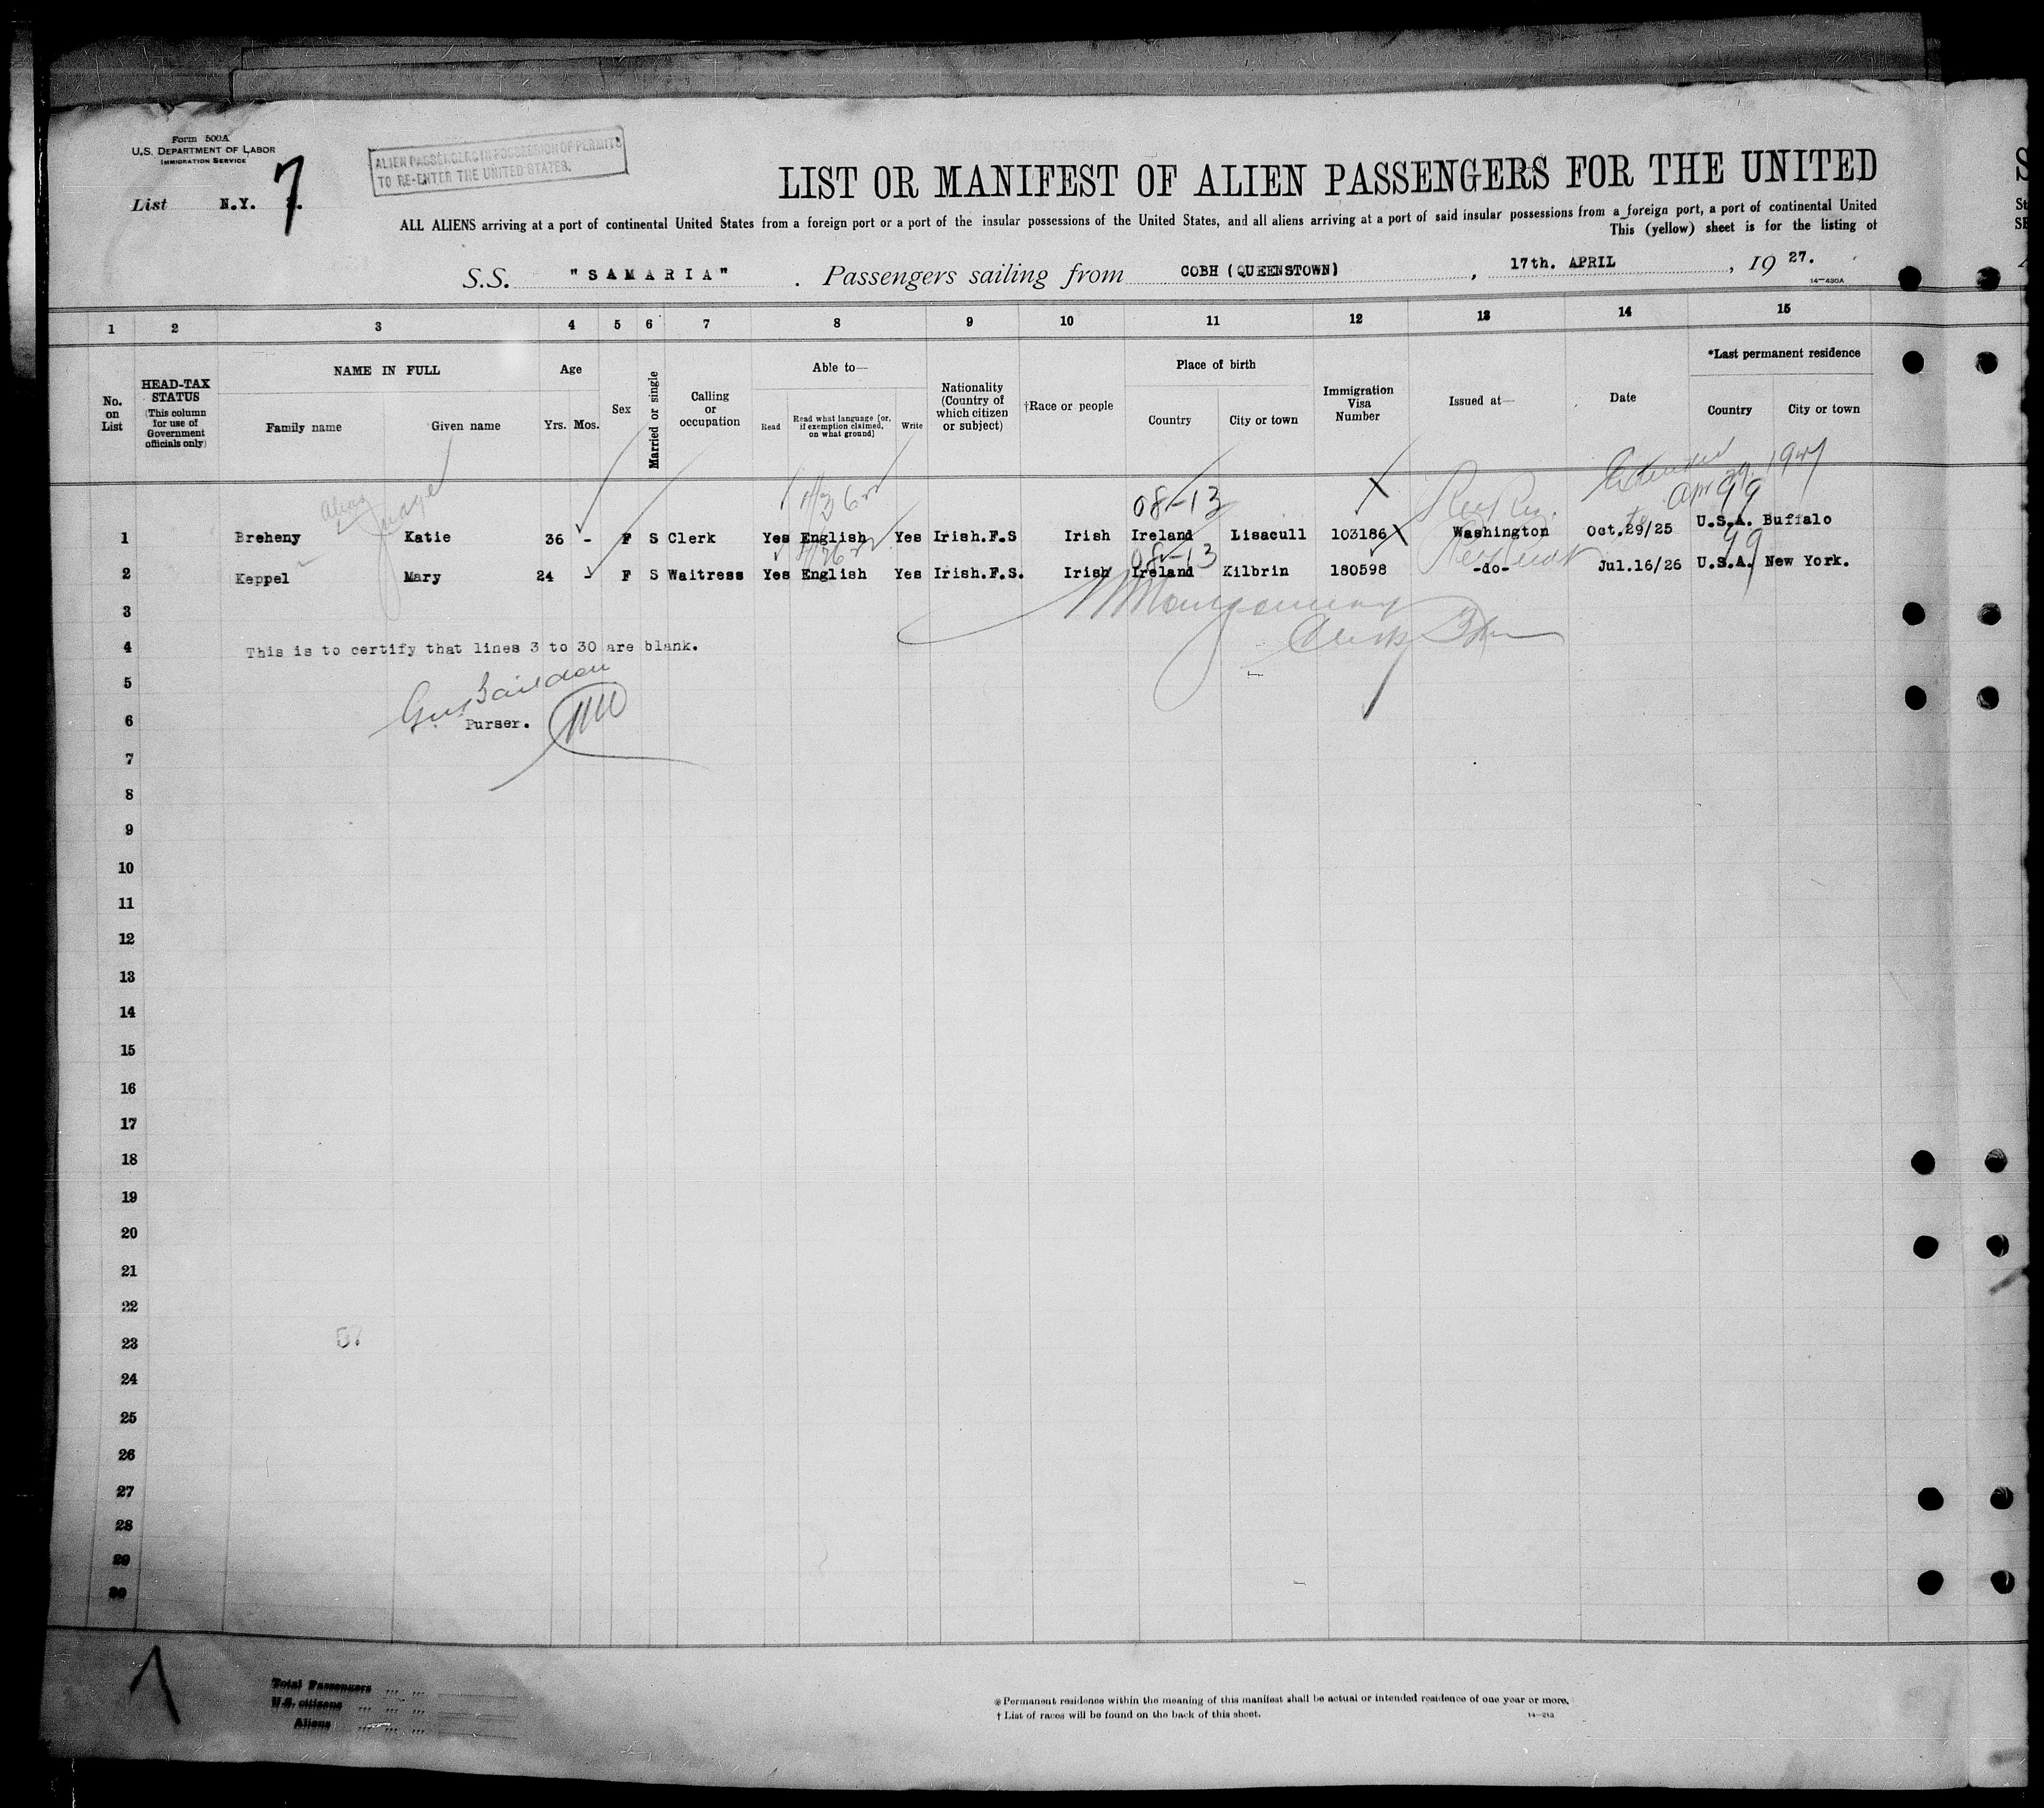 Form 500A
U.S. DEPARTMENT OF LABOR
IMMIGRATION SERVICE
List N.Y. 7
ALIEN PASSENGERS IN POSSESSION OF PERMITS
TO RE-ENTER THE UNITED STATES.
LIST OR MANIFEST OF ALIEN PASSENGERS FOR THE UNITED
ALL ALIENS arriving at a port of continental United States from a foreign port or a port of the insular possessions of the United States, and all aliens arriving at a port of said insular possessions from a foreign port, a port of continental United
This (yellow) sheet is for the listing of
S.S. "SAMARIA" . Passengers sailing from COBH (QUEENSTOWN) , 17th. APRIL , 19 27.
14-430A
1 2 3 4 5 6 7 8 9 10 11 12 13 14 15
No. on List
HEAD-TAX STATUS
(This column for use of Government officials only)
NAME IN FULL
Family name Given name
Age
Yrs. Mos.
Sex
Married or single
Calling or occupation
Able to—
Read Read what language (or, if exemption claimed, on what ground) Write
Nationality (Country of which citizen or subject)
†Race or people
Place of birth
Country City or town
Immigration Visa Number
Issued at—
Date
*Last permanent residence
Country City or town
Alias Judge
08-13
Extended
to Apr 29, 1927
99
1 Breheny Katie 36 - F S Clerk Yes English Yes Irish.F.S Irish Ireland Lisacull 103186 Washington Oct.29/25 U.S.A. Buffalo
08-13
99
2 Keppel Mary 24 - F S Waitress Yes English Yes Irish.F.S. Irish Ireland Kilbrin 180598 -do- Jul.16/26 U.S.A. New York.
3
4 This is to certify that lines 3 to 30 are blank.
5
6 Purser.
7
8
9
10
11
12
13
14
15
16
17
18
19
20
21
22
23
24
25
26
27
28
29
30
Total Passengers ... ...
U.S. citizens ... ... ...
Aliens ... ... ...
*Permanent residence within the meaning of this manifest shall be actual or intended residence of one year or more.
† List of races will be found on the back of this sheet.
14-213